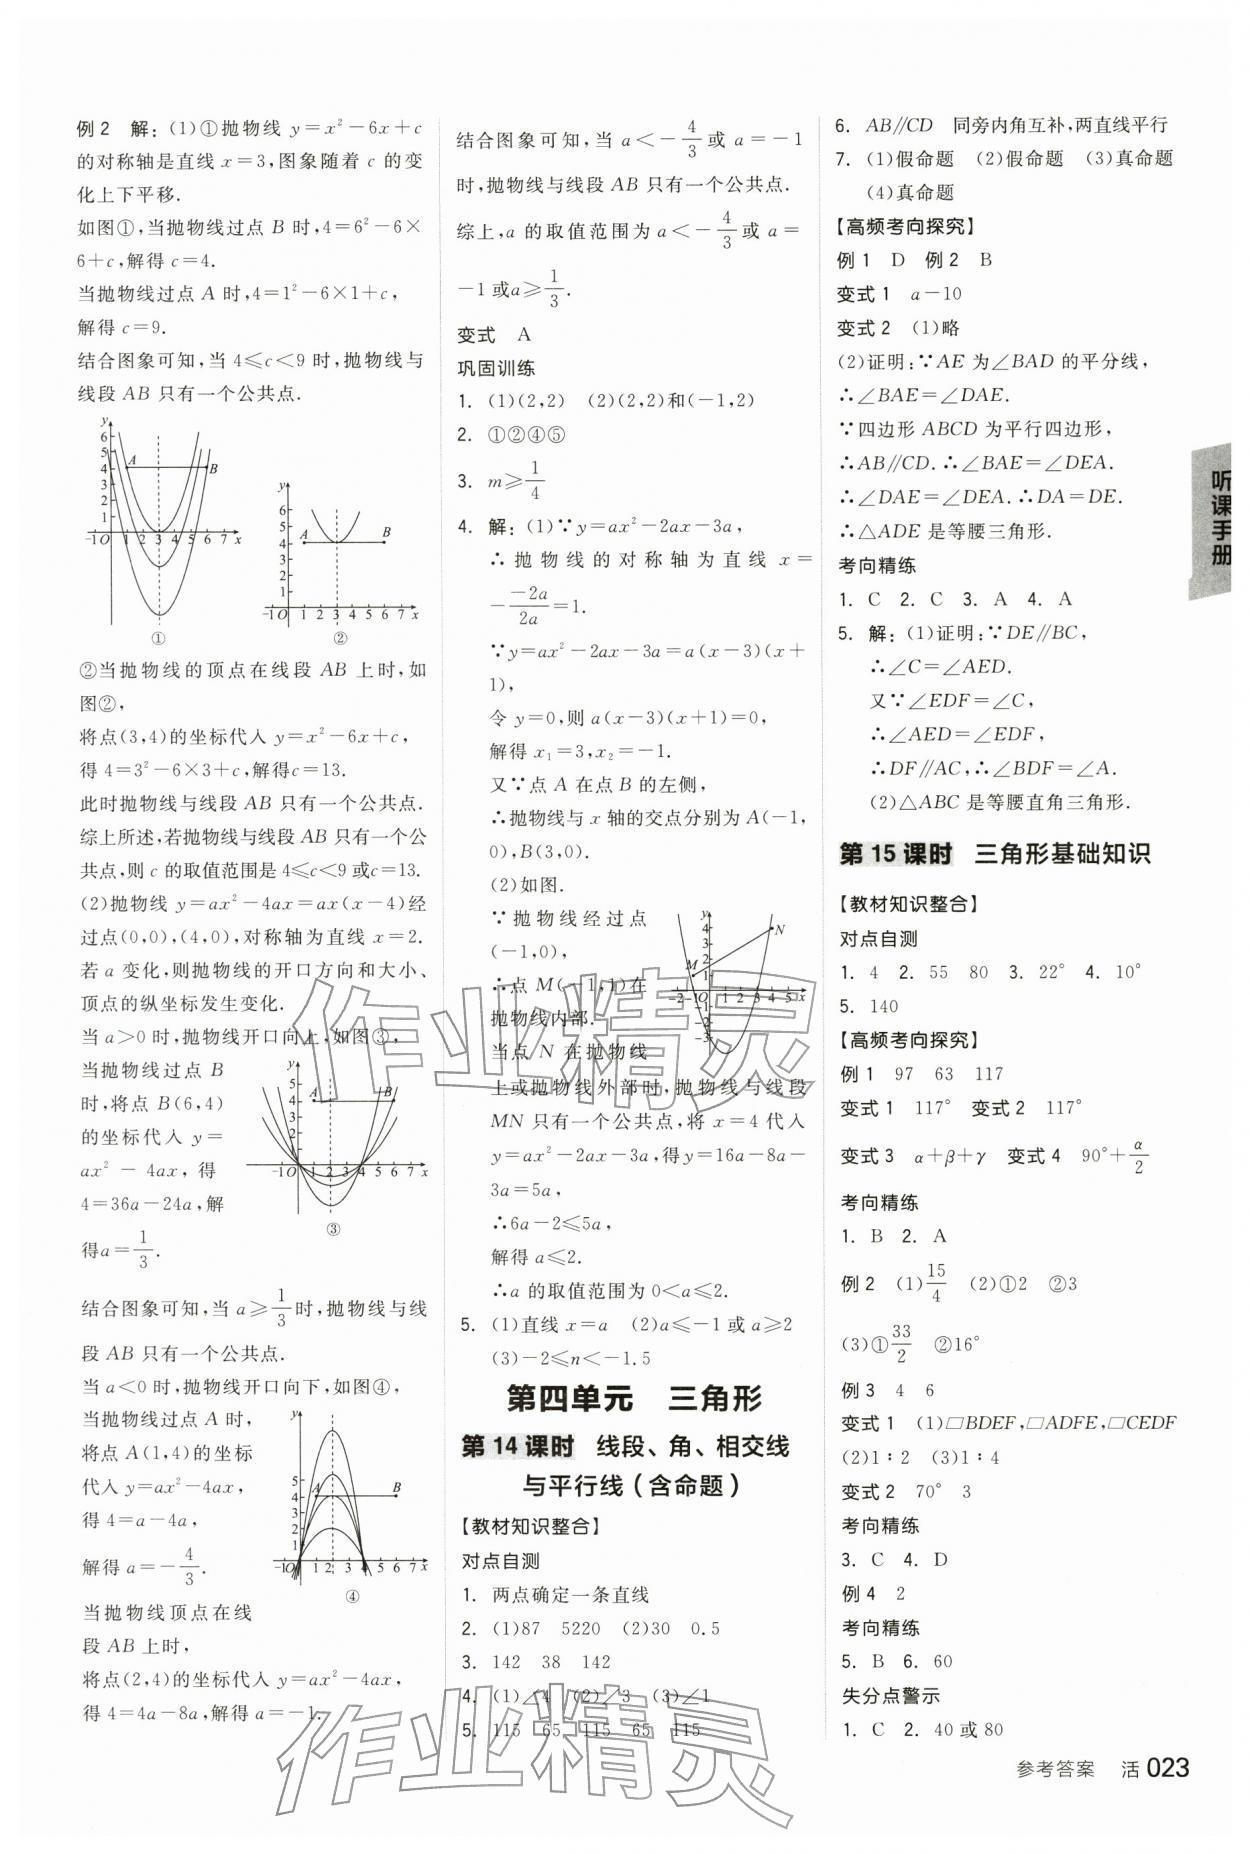 例2 解:(1)①抛物线 y=x²-6x+c
的对称轴是直线 x=3,图象随着 c 的变
化上下平移.
如图①,当抛物线过点 B 时,4=6²-6×
6+c,解得 c=4.
当抛物线过点 A 时,4=1²-6×1+c,
解得 c=9.
结合图象可知,当 4≤c<9 时,抛物线与
线段 AB 只有一个公共点.
①
②
②当抛物线的顶点在线段 AB 上时,如
图②,
将点(3,4)的坐标代入 y=x²-6x+c,
得 4=3²-6×3+c,解得c=13.
此时抛物线与线段 AB 只有一个公共点.
综上所述,若抛物线与线段 AB 只有一个公
共点,则 c 的取值范围是 4≤c<9 或c=13.
(2)抛物线 y=ax²-4ax=ax(x-4)经
过点(0,0),(4,0),对称轴为直线 x=2.
若 a 变化,则抛物线的开口方向和大小、
顶点的纵坐标发生变化.
当 a>0 时,抛物线开口向上,如图③,
当抛物线过点 B
时,将点 B(6,4)
的坐标代入 y=
ax²-4ax,得
4=36a-24a,解
得a=1/3.
③
结合图象可知,当 a≥1/3时,抛物线与线
段 AB 只有一个公共点.
当 a<0 时,抛物线开口向下,如图④,
当抛物线过点 A 时,
将点 A(1,4)的坐标
代入 y=ax²-4ax,
得 4=a-4a,
解得 a=-4/3.
④
当抛物线顶点在线
段 AB 上时,
将点(2,4)的坐标代入 y=ax²-4ax,
得 4=4a-8a,解得 a=-1.
结合图象可知,当 a<-4/3或 a=-1
时,抛物线与线段 AB 只有一个公共点.
综上,a 的取值范围为 a<-4/3或 a=
-1 或a≥1/3.
变式 A
巩固训练
1. (1)(2,2) (2)(2,2)和(-1,2)
2. ①②④⑤
3. m≥1/4
4. 解:(1)∵y=ax²-2ax-3a,
∴抛物线的对称轴为直线 x=
-(-2a)/(2a)=1.
∵y=ax²-2ax-3a=a(x-3)(x+
1),
令 y=0,则 a(x-3)(x+1)=0,
解得 x₁=3,x₂=-1.
又∵点 A 在点 B 的左侧,
∴抛物线与 x 轴的交点分别为 A(-1,
0),B(3,0).
(2)如图.
∵抛物线经过点
(-1,0),
∴点 M(-1,1)在
抛物线内部.
当点 N 在抛物线
上或抛物线外部时,抛物线与线段
MN 只有一个公共点,将 x=4 代入
y=ax²-2ax-3a,得 y=16a-8a-
3a=5a,
∴6a-2≤5a,
解得 a≤2.
∴a 的取值范围为 0<a≤2.
5. (1)直线 x=a (2)a≤-1 或 a≥2
(3)-2≤n<-1.5
第四单元 三角形
第 14 课时 线段、角、相交线
与平行线(含命题)
【教材知识整合】
对点自测
1. 两点确定一条直线
2. (1)87 5220 (2)30 0.5
3. 142 38 142
4. (1)∠4 (2)∠3 (3)∠1
5. 115 65 115 65 115
6. AB∥CD 同旁内角互补,两直线平行
7. (1)假命题 (2)假命题 (3)真命题
(4)真命题
【高频考向探究】
例1 D 例2 B
变式1 a-10
变式2 (1)略
(2)证明:∵AE 为∠BAD 的平分线,
∴∠BAE=∠DAE.
∵四边形 ABCD 为平行四边形,
∴AB∥CD.∴∠BAE=∠DEA.
∴∠DAE=∠DEA.∴DA=DE.
∴△ADE 是等腰三角形.
考向精练
1. C 2. C 3. A 4. A
5. 解:(1)证明:∵DE∥BC,
∴∠C=∠AED.
又∵∠EDF=∠C,
∴∠AED=∠EDF,
∴DF∥AC,∴∠BDF=∠A.
(2)△ABC 是等腰直角三角形.
第 15 课时 三角形基础知识
【教材知识整合】
对点自测
1. 4 2. 55 80 3. 22° 4. 10°
5. 140
【高频考向探究】
例1 97 63 117
变式1 117° 变式2 117°
变式3 α+β+γ 变式4 90°+α/2
考向精练
1. B 2. A
例2 (1)15/4 (2)①2 ②3
(3)①33/2 ②16°
例3 4 6
变式1 (1)□BDEF,□ADFE,□CEDF
(2)1∶2 (3)1∶4
变式2 70° 3
考向精练
3. C 4. D
例4 2
考向精练
5. B 6. 60
失分点警示
1. C 2. 40 或 80
听课手册
参考答案 活 023
作业精灵
作业精灵